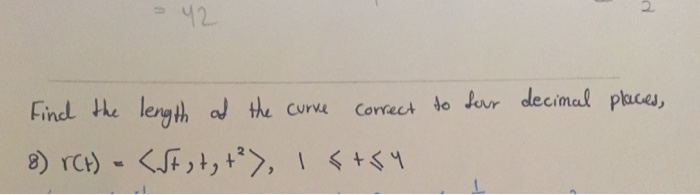 = 42
2
Find the length of the curve correct to four decimal places,
8) r(t) = <√t, t, t²>, 1 ≤ t ≤ 4
1